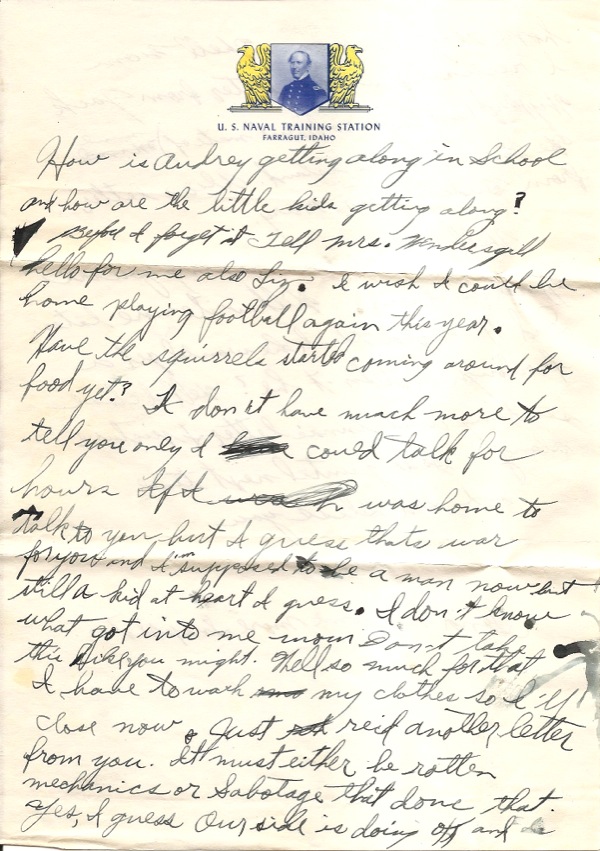 U. S. NAVAL TRAINING STATION
FARRAGUT, IDAHO
How is Audrey getting along in School
and how are the little kids getting along?
Before I forget it Tell Mrs.
hello for me also Liz. I wish I could be
home playing football again this year.
Have the squirrels started coming around for
food yet? I don't have much more to
tell you only I could talk for
hours if I was home to
talk to you but I guess thats war
for you and I'm supposed to be a man now but
still a kid at heart I guess. I don't know
what got into me mom Don't take
this like you might. Well so much for that
I have to wash my clothes so I'll
close now. Just reid another letter
from you. It must either be rotten
mechanics or Sabotage that done that.
Yes, I guess Our side is doing off and